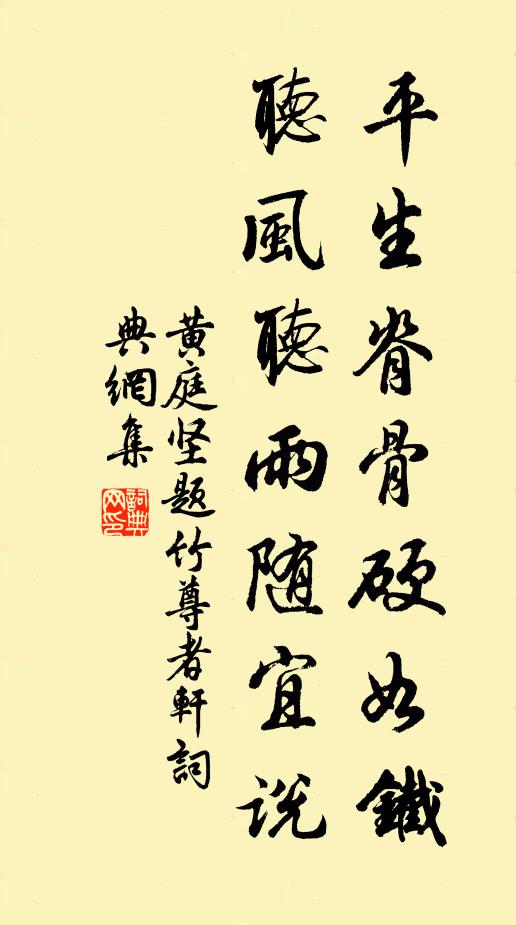 平生脊骨硬如鐵
聽風聽雨随宜説
黄庭坚題竹尊者軒詞
典網集
詞典
网印